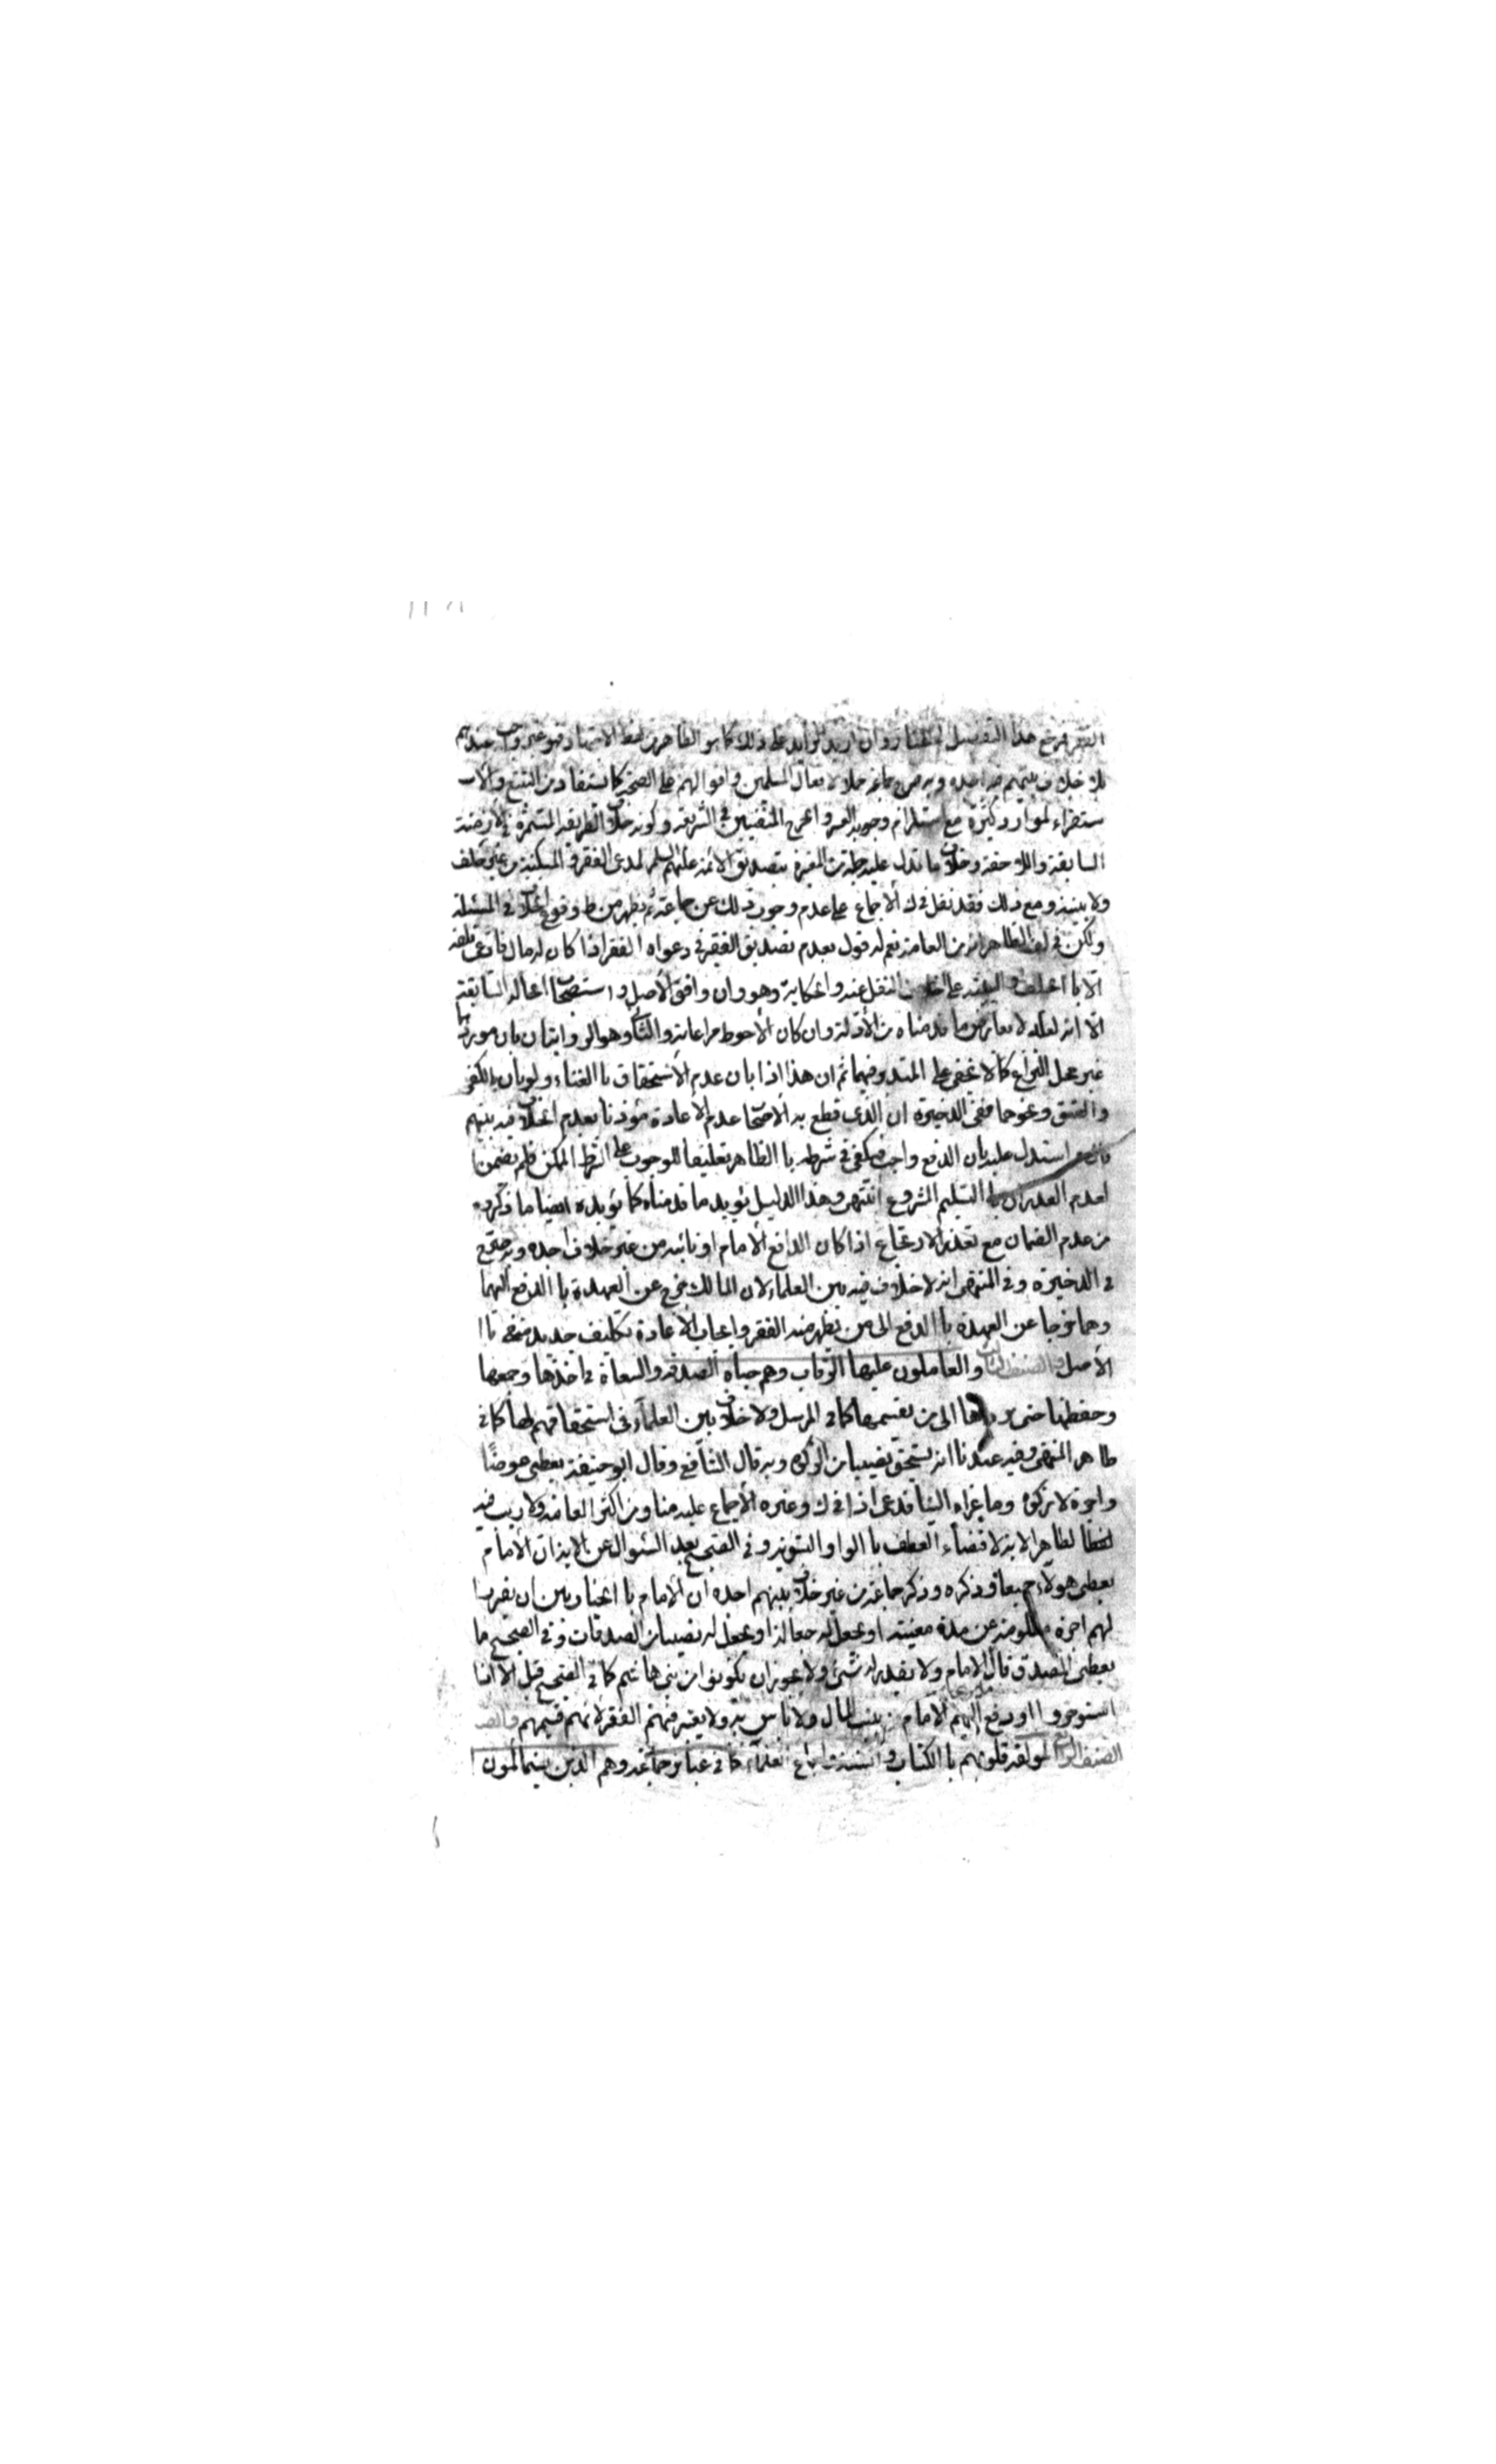 هذا التفصيل وان اريد ذلك كما هو الظاهر من لفظ فهو غير واجب عندهم
بلا خلاف بينهم من احده وبه صرح جماعة لافعال المسلمين واقوالهم على الصحة كما يستفاد من التتبع والا
ستقراء لموارد كثيرة مع استلزام وجوبه العسر والحرج المنفيين في الشريعة وكونه خلاف الطريقة المستمرة في الازمنة
السابقة واللاحقة وخلاف ما تدل عليه جملة من المعتبرة بتصديق الائمة عليهم السلم لمدعى الفقر والمسكنة من غير حلف
ولا بينة ومع ذلك فقد نقل في ك الاجماع على عدم وجوب ذلك عن جماعة ويظهر من ط وقوع الخلاف في المسئلة
ولكن في لف الظاهر انه من العامة نعم له قول بعدم تصديق الفقير في دعواه الفقر اذا كان له مال فادعى تلفه
الا با الحلف والبينة على اختلاف النقل عنه والحكاية وهو وان وافق الاصل واستصحاب الحالة السابقة
الا انه لا يعارض ما قدمناه من الأدلة وان كان الأحوط مراعاته والثانى وهو الروايتان بان موردهما
غير محل النزاع كما لا يخفى على المتدبر فيهما ثم ان هذا اذا بان عدم الأستحقاق با الغناء ولو بان با الكفر
والفسق ونحوهما ففى الذخيرة ان الذى قطع به الأصحاب عدم الأعادة مؤذنا بعدم الخلاف فيه بينهم
استدل عليه بان الدفع واجب فيكفى في شرطه با الظاهر تعليقا للوجوب على الشرط الممكن فلم يضمن
لعدم العدوان با التسليم المشروع انتهى وهذا الدليل يؤيد ما قدمناه كما يؤيده ايضا ما ذكروه
من عدم الضمان مع تعذر الارتجاع اذا كان الدافع الأمام او نائبه من غير خلاف احده وبه صرح
في الذخيرة وفى المنتهى انه لا خلاف فيه بين العلماء لان المالك خرج عن العهدة با الدفع اليهما
وهما خرجا عن العهدة با الدفع الى من يظهر منه الفقر وايجاب الأعادة تكليف جديد منفى با
الأصل والصنف الثالث والعاملون عليها الوقاب وهم جباة الصدقة والسعاة في اخذها وجمعها
وحفظها حتى يردوها الى من يقسمها كما في المرسل ولا خلاف بين العلماء في استحقاقهم لها كما في
ظاهر المنتهى وفيه عندنا انه يستحق نصيبا من الزكوة وبه قال الشافعى وقال ابو حنيفة يعطى عوضًا
واجرة لا زكوة وما عزاه الينا قد ادعى في ك وغيره الأجماع عليه منا ومن اكثر العامة ولا ريب فيه
لظاهر الاية لاقتضاء العطف با الواو التسوية وفى الصحيح بعد السئوال عن الاية ان الأمام
يعطى هولاء جميعا وذكره وذكر جماعة من غير خلاف بينهم احده ان الأمام با الخيار بين ان يقرر
لهم اجرة معلومة عن مدة معينة او يجعل له جعالة او يجعل له نصيبا من الصدقات وفى الصحيح ما
يعطى المصدق قال الامام ولا يقدر له شئ ولا يجوز ان يكونوا من بنى هاشم كما في الصحيح قيل الا اذا
استوجروا او دفع اليهم الامام من بيت المال ولا باس به ولا يعتبر فيهم الفقر لأنهم قسيمهم والصنـ
الصنف الرابع المولفة قلوبهم با الكتاب والسنة العلماء كما في عبائر جماعة وهم الذين يستمالون